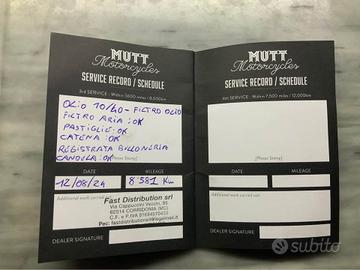 MUTT
Motorcycles
SERVICE RECORD / SCHEDULE
3rd SERVICE : Within 5600 miles / 8,000km
OLIO 10/40 - FILTRO OLIO
FILTRO ARIA : OK
PASTIGLIE: OK
CATENA : OK
REGISTRATA BULLONERIA
CANDELA : OK
[Please Stamp]
DATE
MILEAGE
12/08/24
8'581 Km
Additional work carried out:
Fast Distribution srl
Via Cappuccini Vecchi, 85
62014 CORRIDONIA (MC)
DEALER SIGNATURE
MUTT
Motorcycles
SERVICE RECORD / SCHEDULE
4th SERVICE : Within 7,500 miles / 12,000km
[Please Stamp]
DATE
MILEAGE
Additional work carried out:
DEALER SIGNATURE
subito